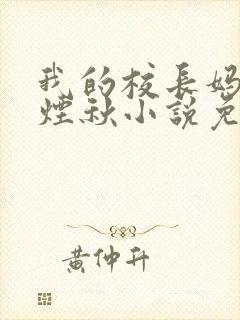 我的校長媽
煙秋小說免
黃仲升